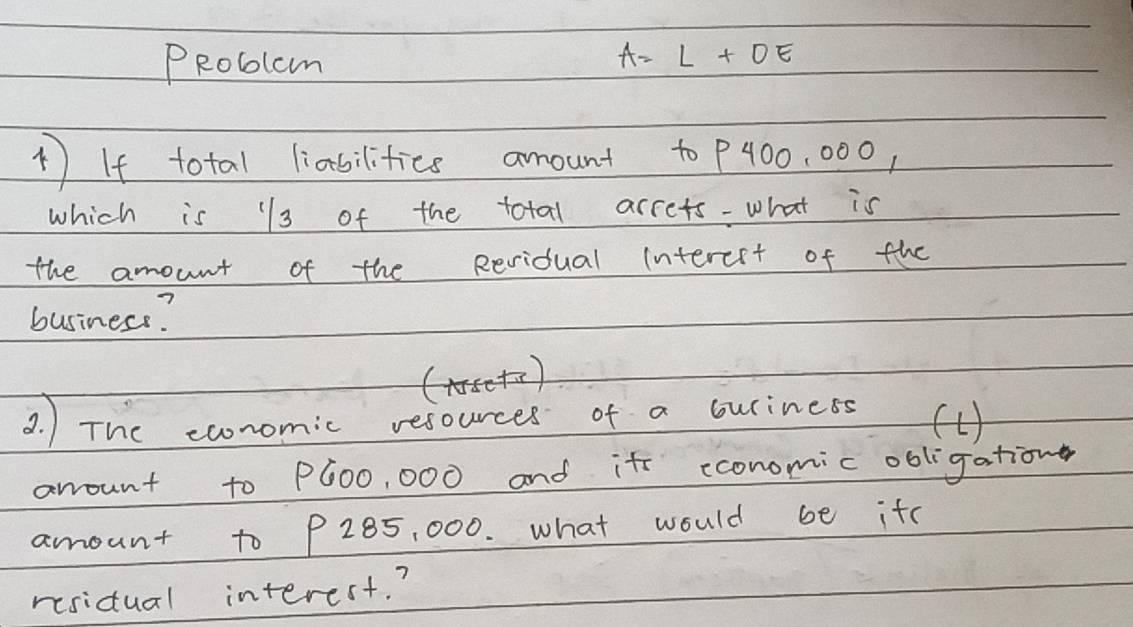 Problem A = L + OE
1) If total liabilities amount to P400,000,
which is 1/3 of the total assets - what is
the amount of the Residual Interest of the
business?
(Assets)
2.) The economic resources of a business (L)
amount to P600,000 and its economic obligation
amount to P285,000. what would be its
residual interest?